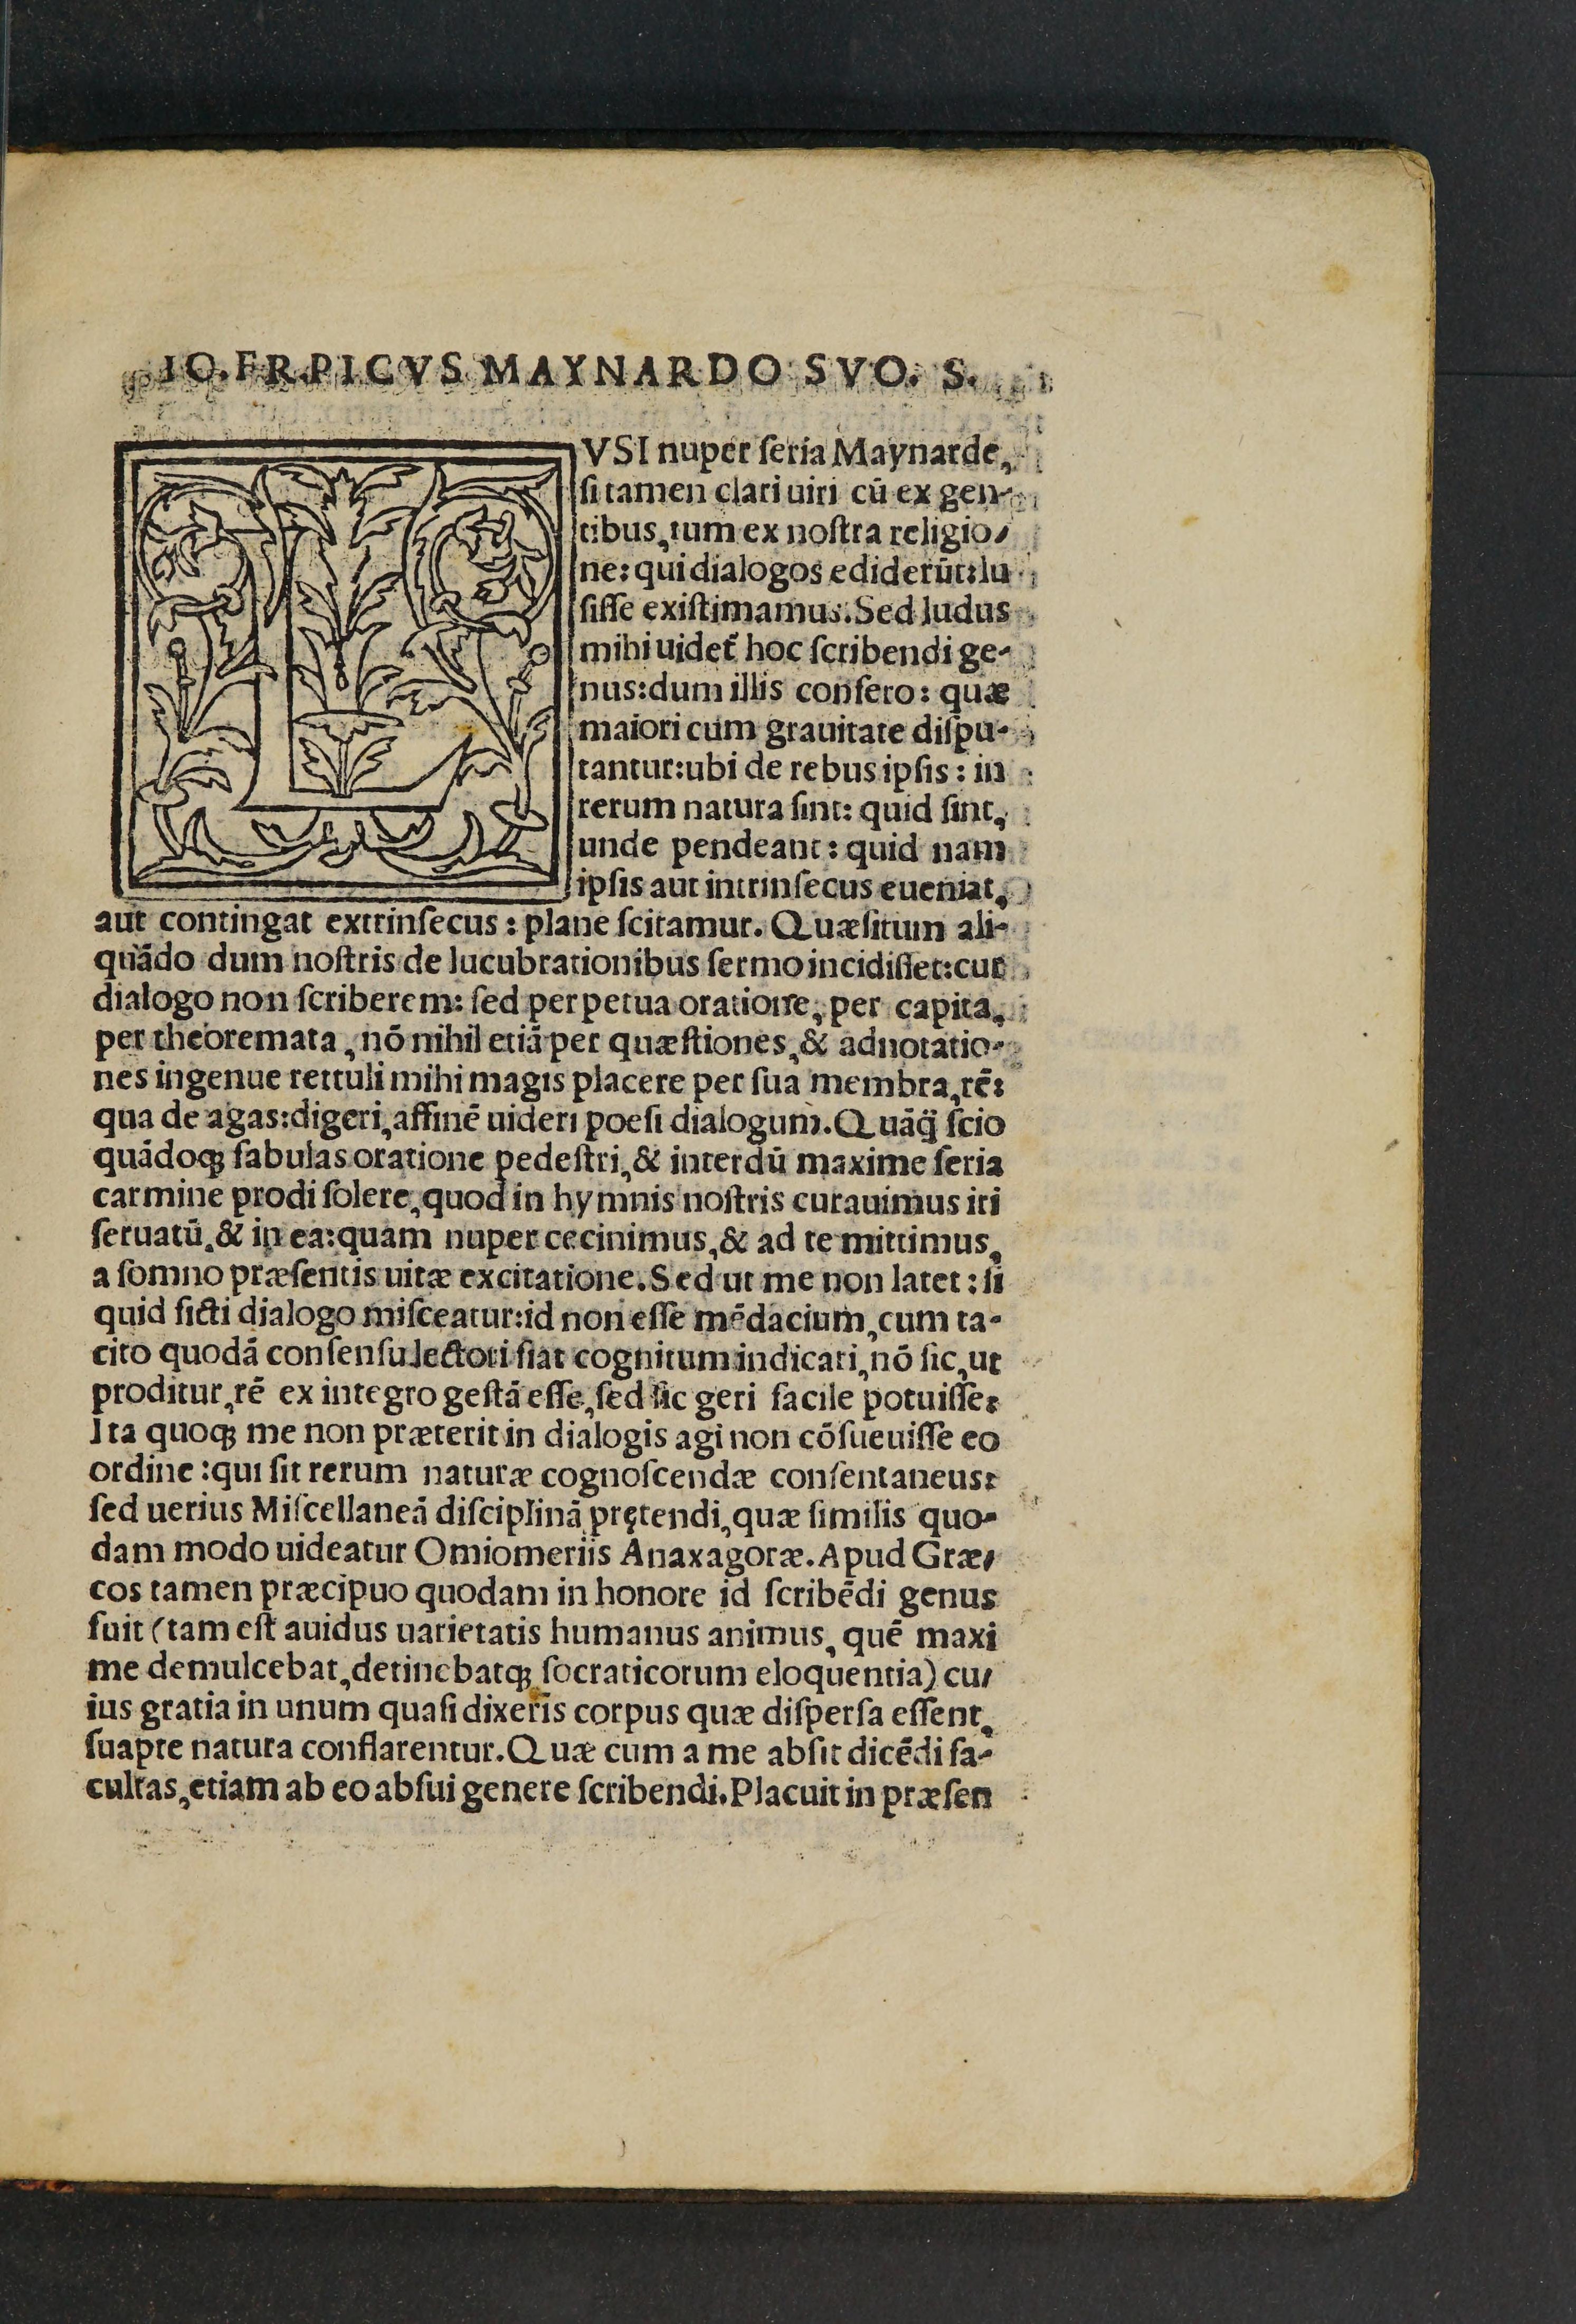 IO.FR.PICVS MAYNARDO SVO. S.
LVSI nuper ſeria Maynarde,
ſi tamen clari uiri cū ex gen-
tibus, tum ex noſtra religio-
ne: qui dialogos ediderūt: lu
ſiſſe exiſtimamus. Sed ludus
mihi uidet̃ hoc ſcribendi ge-
nus: dum illis confero: quæ
maiori cum grauitate diſpu-
tantur: ubi de rebus ipſis: in
rerum natura ſint: quid ſint,
unde pendeant: quid nam
ipſis aut intrinſecus eueniat,
aut contingat extrinſecus: plane ſcitamur. Quæſitum ali-
quādo dum noſtris de lucubrationibus ſermo incidiſſet: cur
dialogo non ſcriberem: ſed perpetua oratione, per capita,
per theoremata, nō nihil etiā per quæſtiones, & adnotatio-
nes ingenue rettuli mihi magis placere per ſua membra, rē:
qua de agas: digeri, affinē uideri poeſi dialogum. Quāq̄ ſcio
quādoqꝫ fabulas oratione pedeſtri, & interdū maxime ſeria
carmine prodi ſolere, quod in hymnis noſtris curauimus iri
ſeruatū, & in ea: quam nuper cecinimus, & ad te mittimus,
a ſomno præſentis uitæ excitatione. Sed ut me non latet: ſi
quid ficti dialogo miſceatur: id non eſſe mēdacium, cum ta-
cito quodā conſenſu lectori fiat cognitum indicari, nō ſic, ut
proditur, rē ex integro geſtā eſſe, ſed ſic geri facile potuiſſe:
Ita quoqꝫ me non præterit in dialogis agi non cōſueuiſſe eo
ordine: qui ſit rerum naturæ cognoſcendæ conſentaneus:
ſed uerius Miſcellaneā diſciplinā prętendi, quæ ſimilis quo-
dam modo uideatur Omiomeriis Anaxagoræ. Apud Græ-
cos tamen præcipuo quodam in honore id ſcribēdi genus
fuit (tam eſt auidus uarietatis humanus animus, quē maxi
me demulcebat, detinebatqꝫ ſocraticorum eloquentia) cu-
ius gratia in unum quaſi dixeris corpus quæ diſperſa eſſent,
ſuapte natura conflarentur. Quæ cum a me abſit dicēdi fa-
cultas, etiam ab eo abſui genere ſcribendi. Placuit in præſen